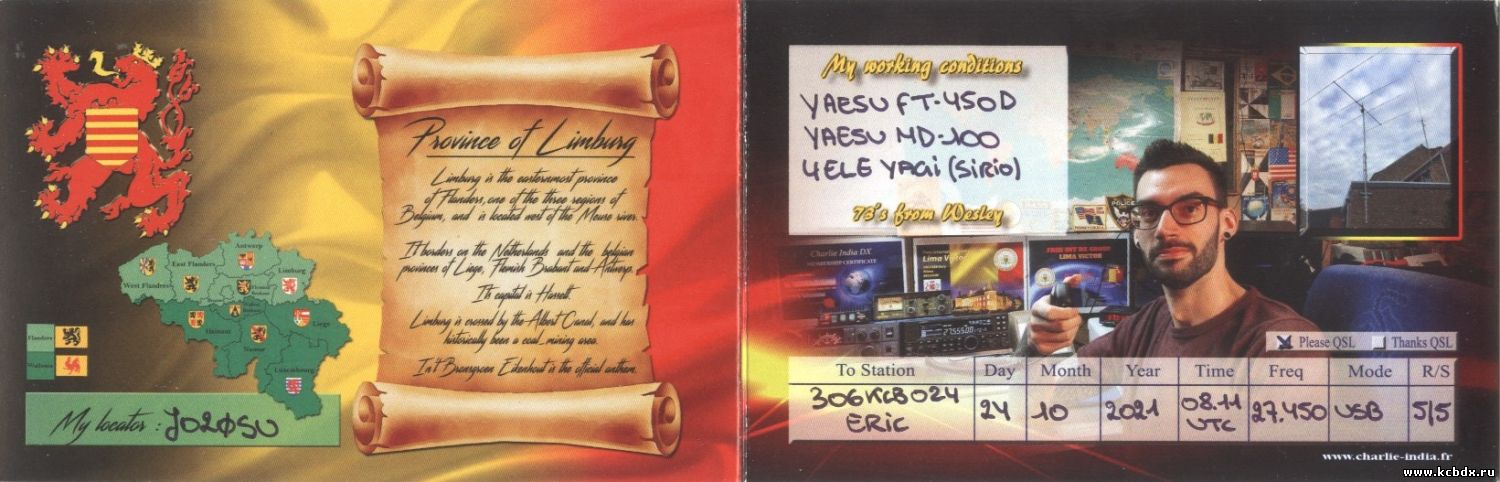 Province of Limburg
Limburg is the easternmost province
of Flanders, one of the three regions of
Belgium, and is located west of the Meuse river.
It borders on the Netherlands and the belgian
provinces of Liege, Flemish Brabant and Antwerp.
Its capital is Hasselt.
Limburg is crossed by the Albert Canal, and has
historically been a coal_mining area.
In't Bronsgroen Eikenhout is the official anthem.
Antwerp
East Flanders
Limburg
West Flanders
Hainaut
Liege
Namur
Luxembourg
Flanders
Wallonia
My locator : JO20SU
My working conditions
YAESU FT-450D
YAESU MD-100
4ELE YAGI (SIRIO)
73's from Wesley
POLICE
Charlie India DX
MEMBERSHIP CERTIFICATE
Lima Victor
LIMA VICTOR
Please QSL
Thanks QSL
To Station Day Month Year Time Freq Mode R/S
306KCB024 ERIC 24 10 2021 08.11 UTC 27.450 USB 5/5
www.charlie-india.fr
www.kcbdx.ru